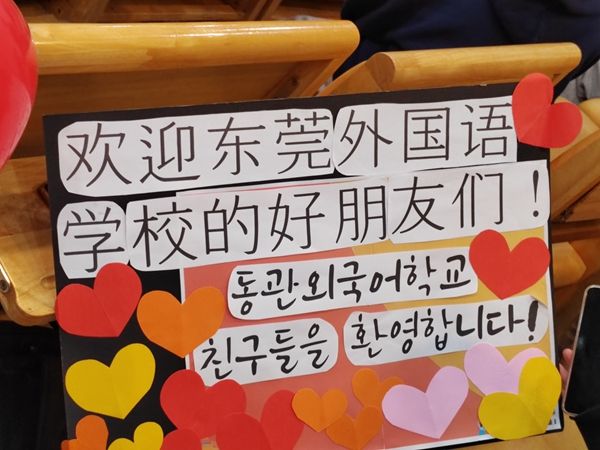 欢迎东莞外国语
学校的好朋友们！
동관외국어학교
친구들을 환영합니다!